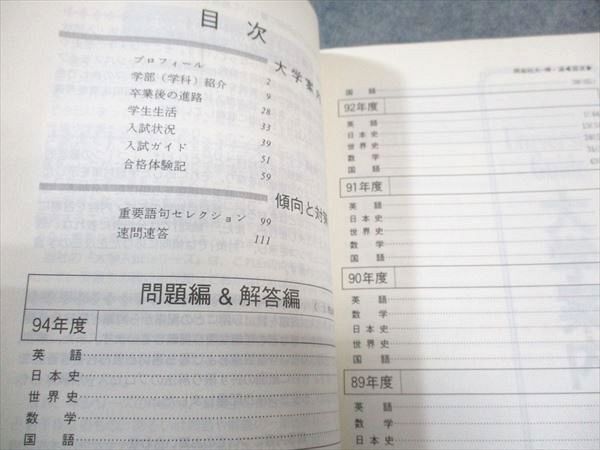 目次
大学案内
プロフィール 2
学部（学科）紹介 9
卒業後の進路 28
学生生活 33
入試状況 39
入試ガイド 51
合格体験記 59
傾向と対策
重要語句セレクション 99
速問速答 111
問題編 & 解答編
94年度
英語
日本史
世界史
数学
国語
国語
92年度
英語
日本史
世界史
数学
91年度
英語
日本史
世界史
数学
国語
90年度
英語
数学
日本史
世界史
国語
89年度
英語
数学
日本史